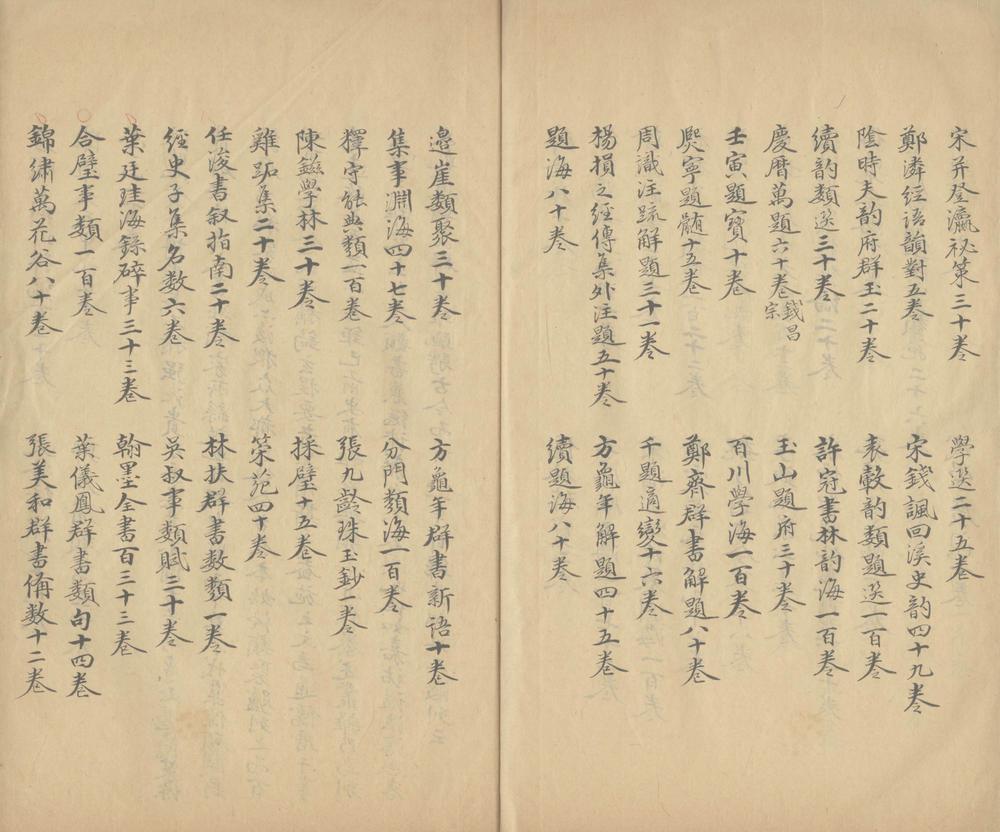 宋并登瀛祕策三十卷
學選二十五卷
鄭潾經語韻對五卷
宋錢諷回溪史韵四十九卷
陰時夫韵府群玉二十卷
袁轂韵類題選一百卷
續韵類選三十卷
許冠書林韵海一百卷
慶曆萬題六十卷錢昌宗
玉山題府三十卷
壬寅題寶十卷
百川學海一百卷
熙寧題髄十五卷
鄭齊群書解題八十卷
周識注疏解題三十一卷
千題適變十六卷
楊損之經傳集外注題五十卷
方龜年解題四十五卷
題海八十卷
續題海八十卷
邉崖類聚三十卷
方龜年群書新語十卷
集事淵海四十七卷
分門類海一百卷
釋守能典類一百卷
張九齡珠玉鈔一卷
陳鎡學林三十卷
採璧十五卷
雞跖集二十卷
策范四十卷
任浚書叙指南二十卷
林扶群書數類一卷
經史子集名數六卷
吳叔事類賦三十卷
葉廷珪海錄碎事三十三卷
翰墨全書百三十三卷
合璧事類一百卷
葉儀鳳群書類句十四卷
錦繡萬花谷八十卷
張美和群書俻数十二卷